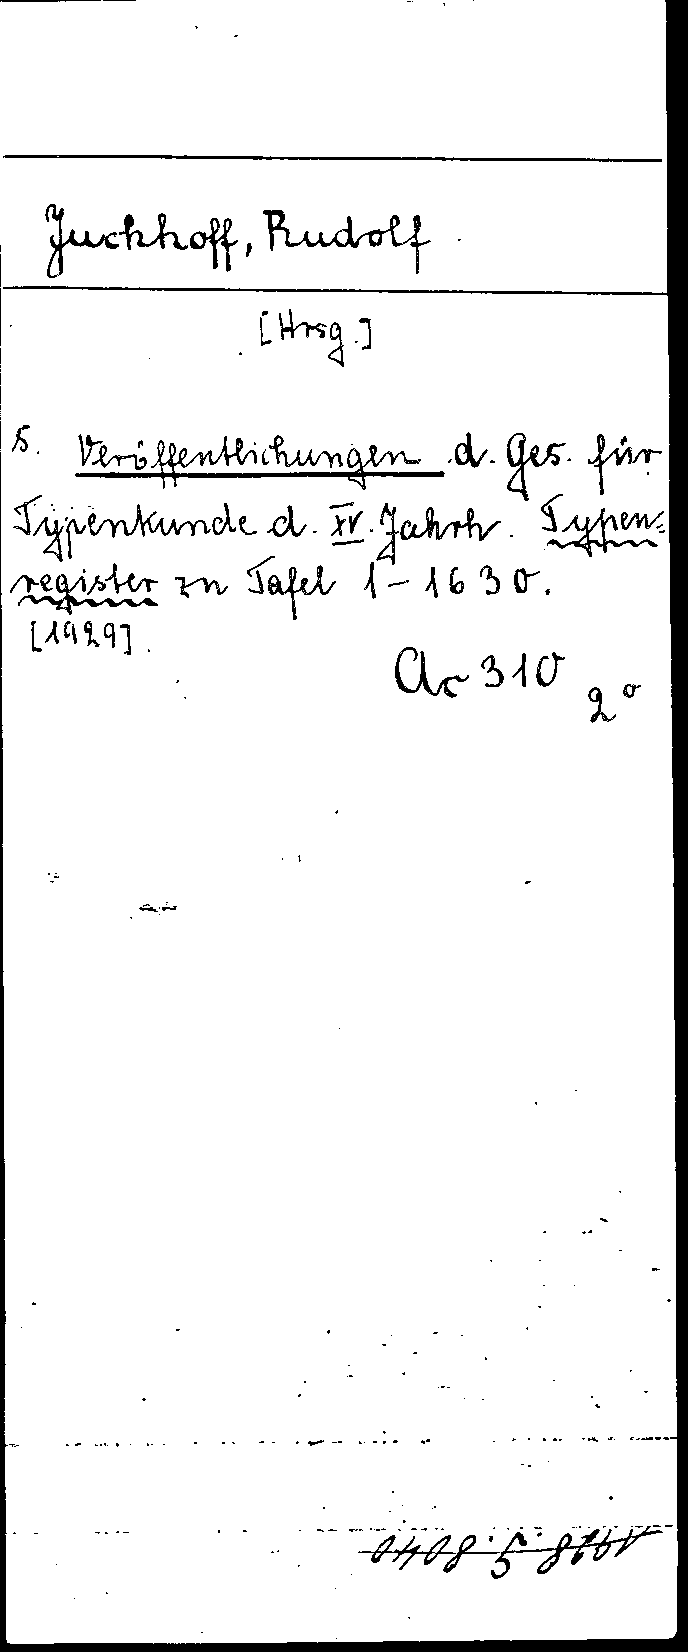 Juchhoff, Rudolf
[Hrsg.]
s. Veröffentlichungen d. Ges. für
Typenkunde d. XV. Jahrh. Typen=
register zu Tafel 1-1630.
[1929].
Ac 310 2°